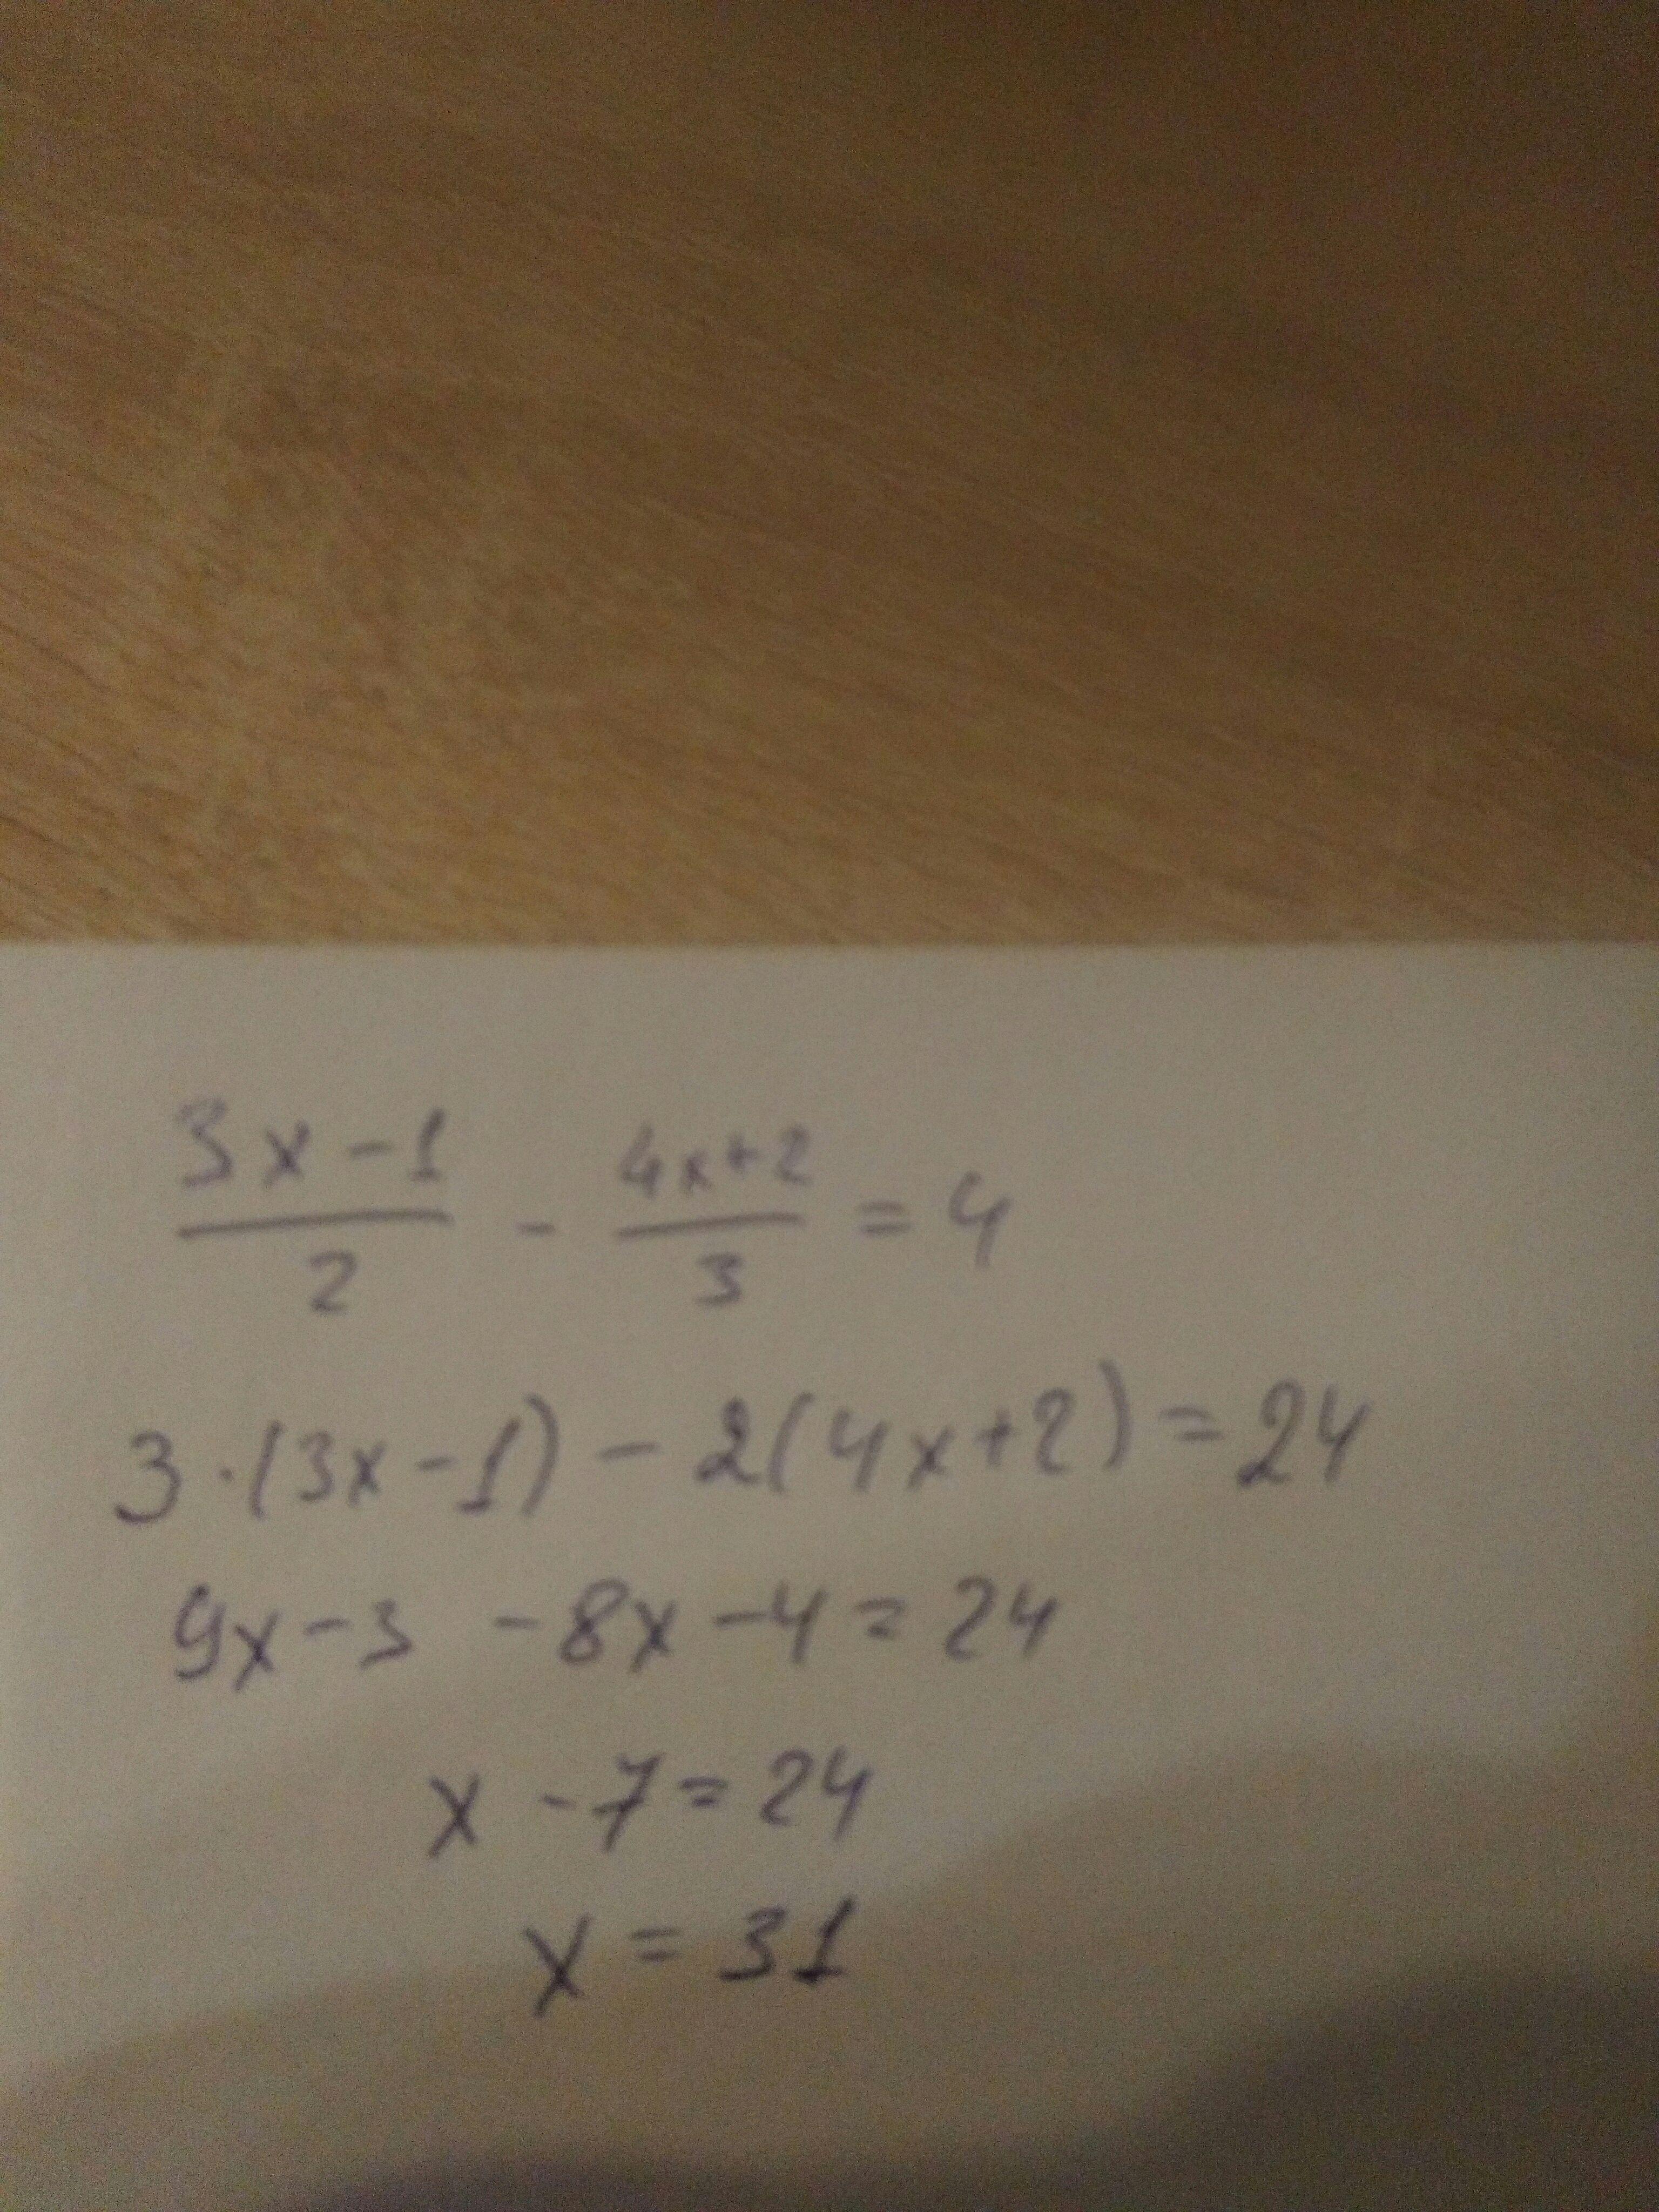 3x-1/2 - 4x+2/3 = 4
3·(3x-1) - 2(4x+2) = 24
9x-3 -8x-4 = 24
x -7 = 24
x = 31